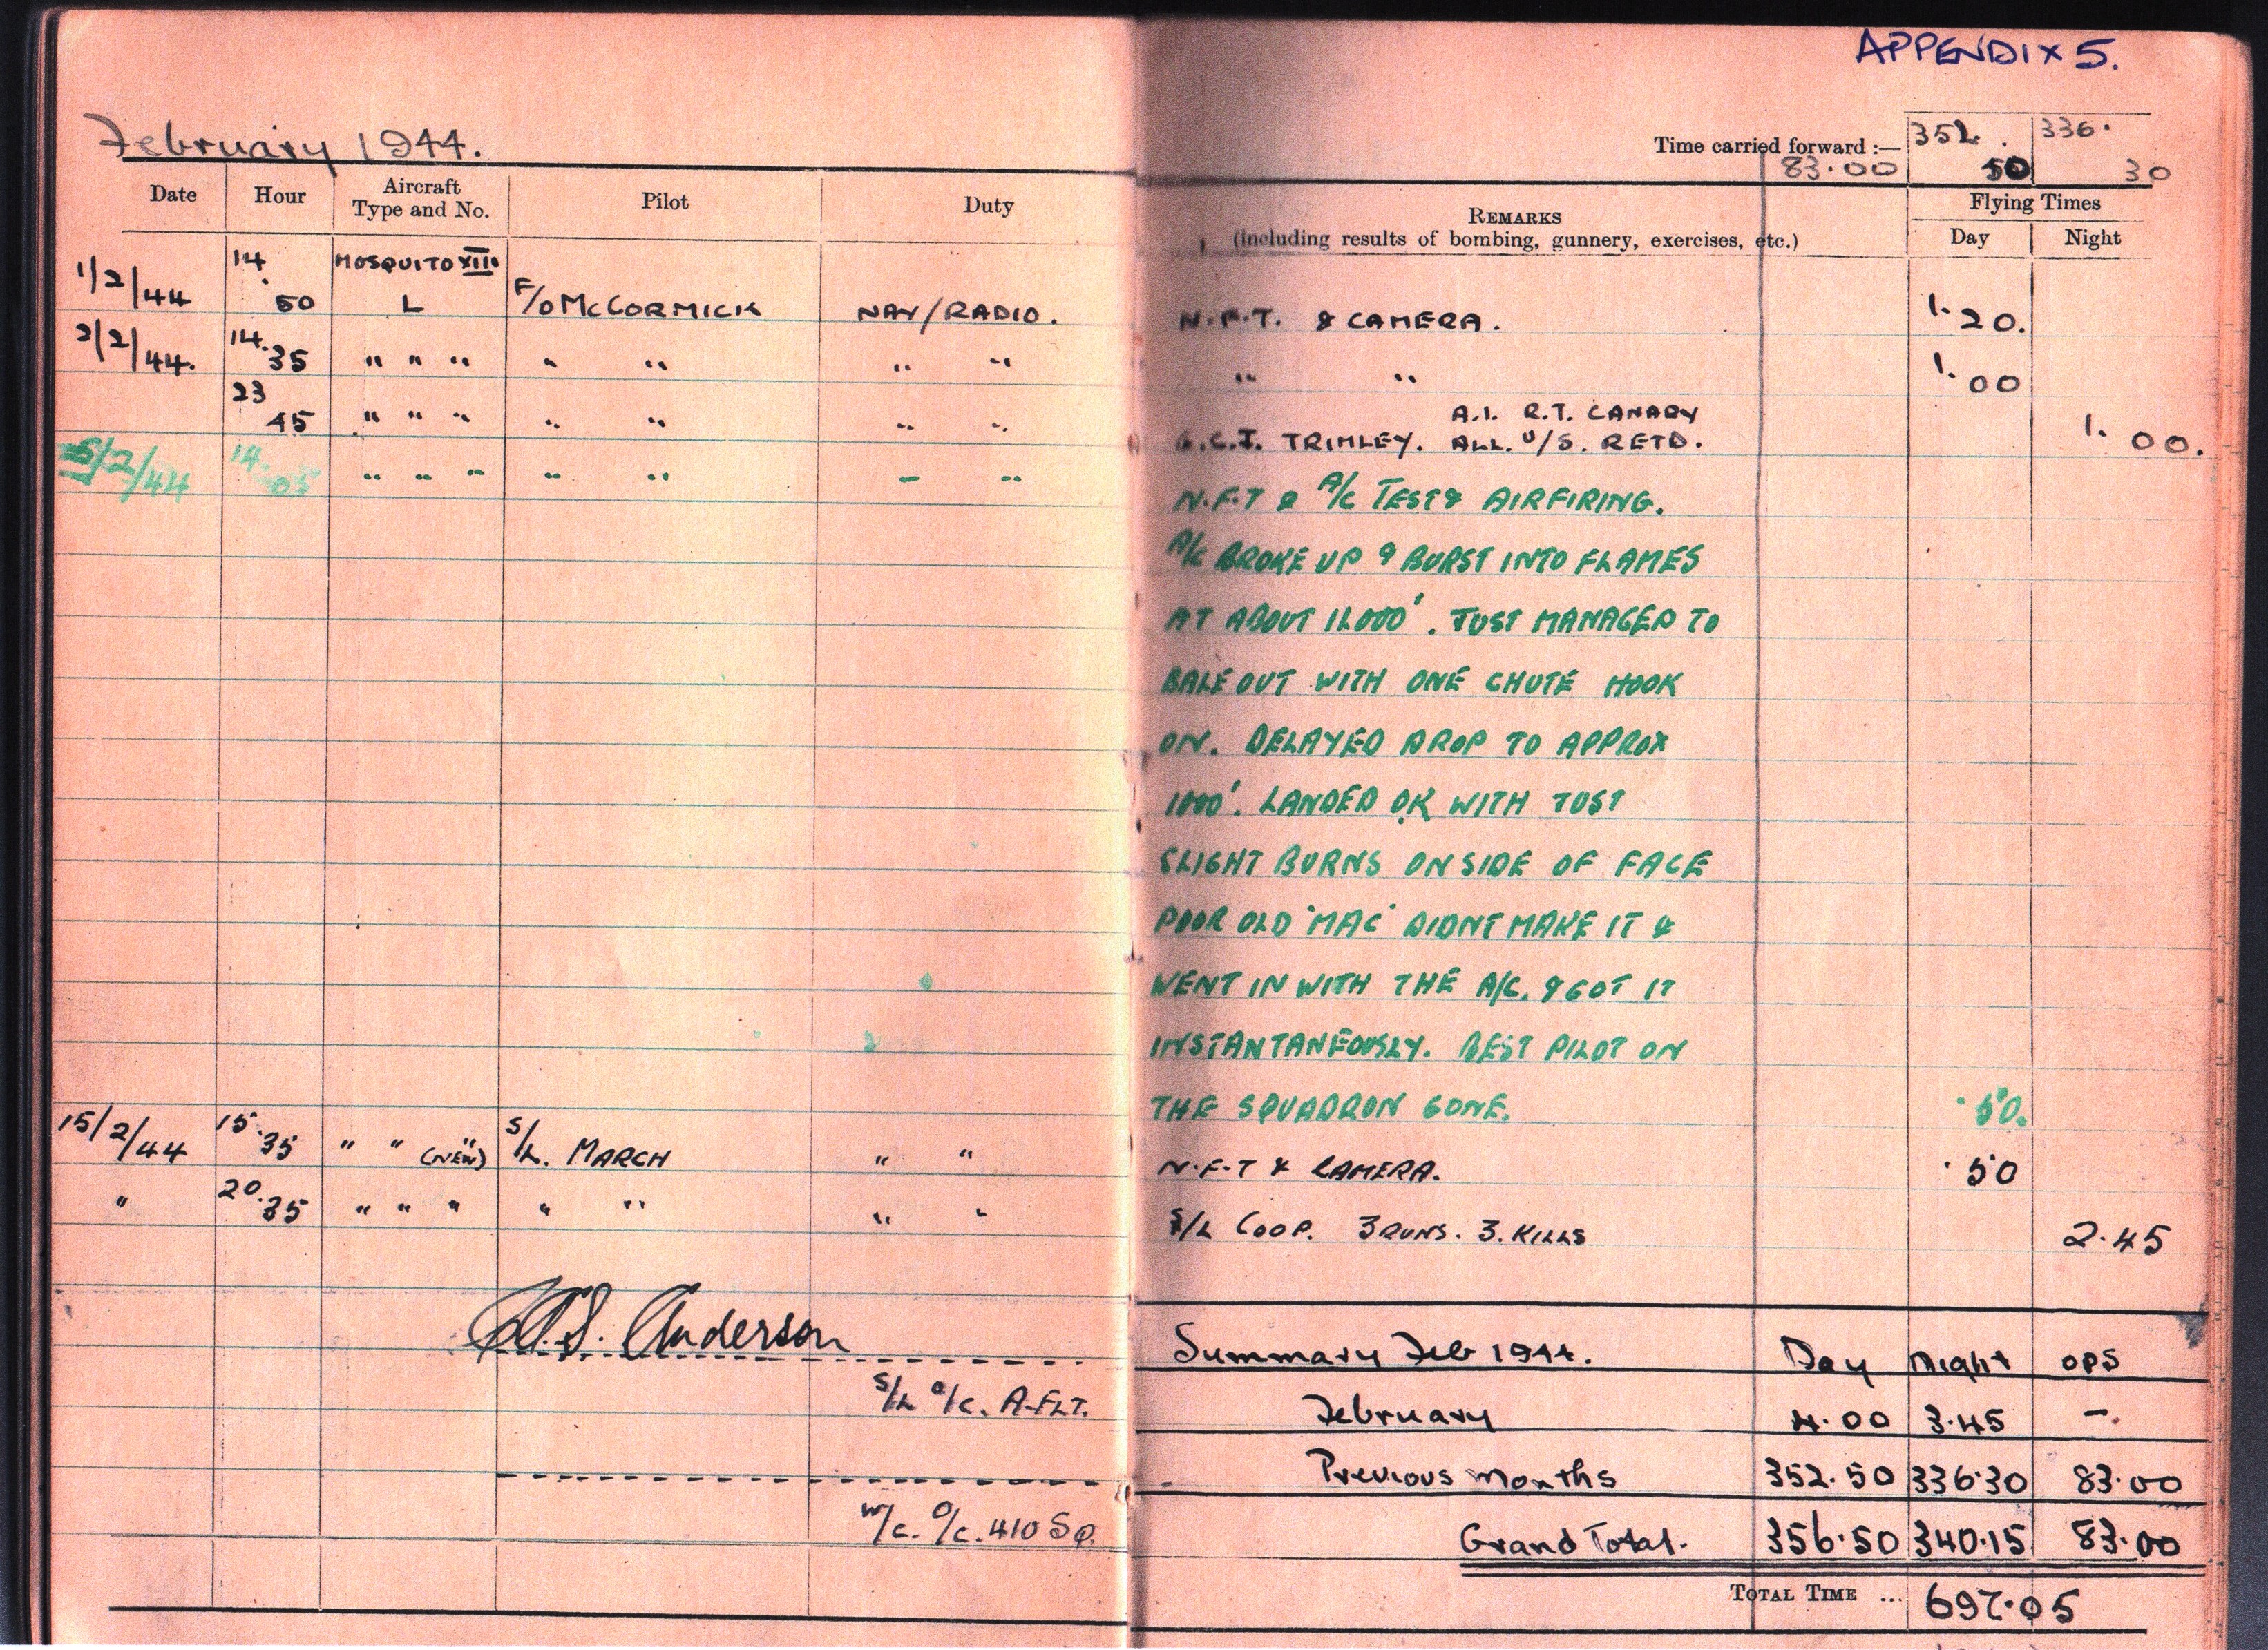 APPENDIX 5.
February 1944.
Time carried forward :— 83.00 352.50 336.30
Date Hour Aircraft Type and No. Pilot Duty REMARKS (including results of bombing, gunnery, exercises, etc.) Flying Times Day Night
1/2/44 14.50 MOSQUITO XIII L F/O McCORMICK NAV/RADIO. N.F.T. & CAMERA. 1.20.
2/2/44. 14.35 " " " " " " " " " 1.00
23 45 " " " " " " " A.I. R.T. CANARY
G.C.I. TRIMLEY. ALL. U/S. RETD. 1.00.
5/2/44 14.05 " " " " " " " N.F.T & A/C TEST & AIRFIRING.
A/C BROKE UP & BURST INTO FLAMES
AT ABOUT 12.000'. JUST MANAGED TO
BALE OUT WITH ONE CHUTE HOOK
ON. DELAYED DROP TO APPROX
1000'. LANDED OK WITH JUST
SLIGHT BURNS ON SIDE OF FACE
POOR OLD 'MAC' DIDNT MAKE IT &
WENT IN WITH THE A/C. & GOT IT
INSTANTANEOUSLY. BEST PILOT ON
THE SQUADRON GONE. .50.
15/2/44 15.35 " " " (NEW) S/L. MARCH " " N.F.T & CAMERA. .50
" 20.35 " " " " " " " S/L COOP. 3 RUNS. 3. KILLS 2.45
Anderson
S/L O/C. A-FLT.
W/C. O/C. 410 SQ.
Summary Feb 1944. Day Night OPS
February 4.00 3.45 -.
Previous Months 352.50 336.30 83.00
Grand Total. 356.50 340.15 83.00
TOTAL TIME ... 697.05